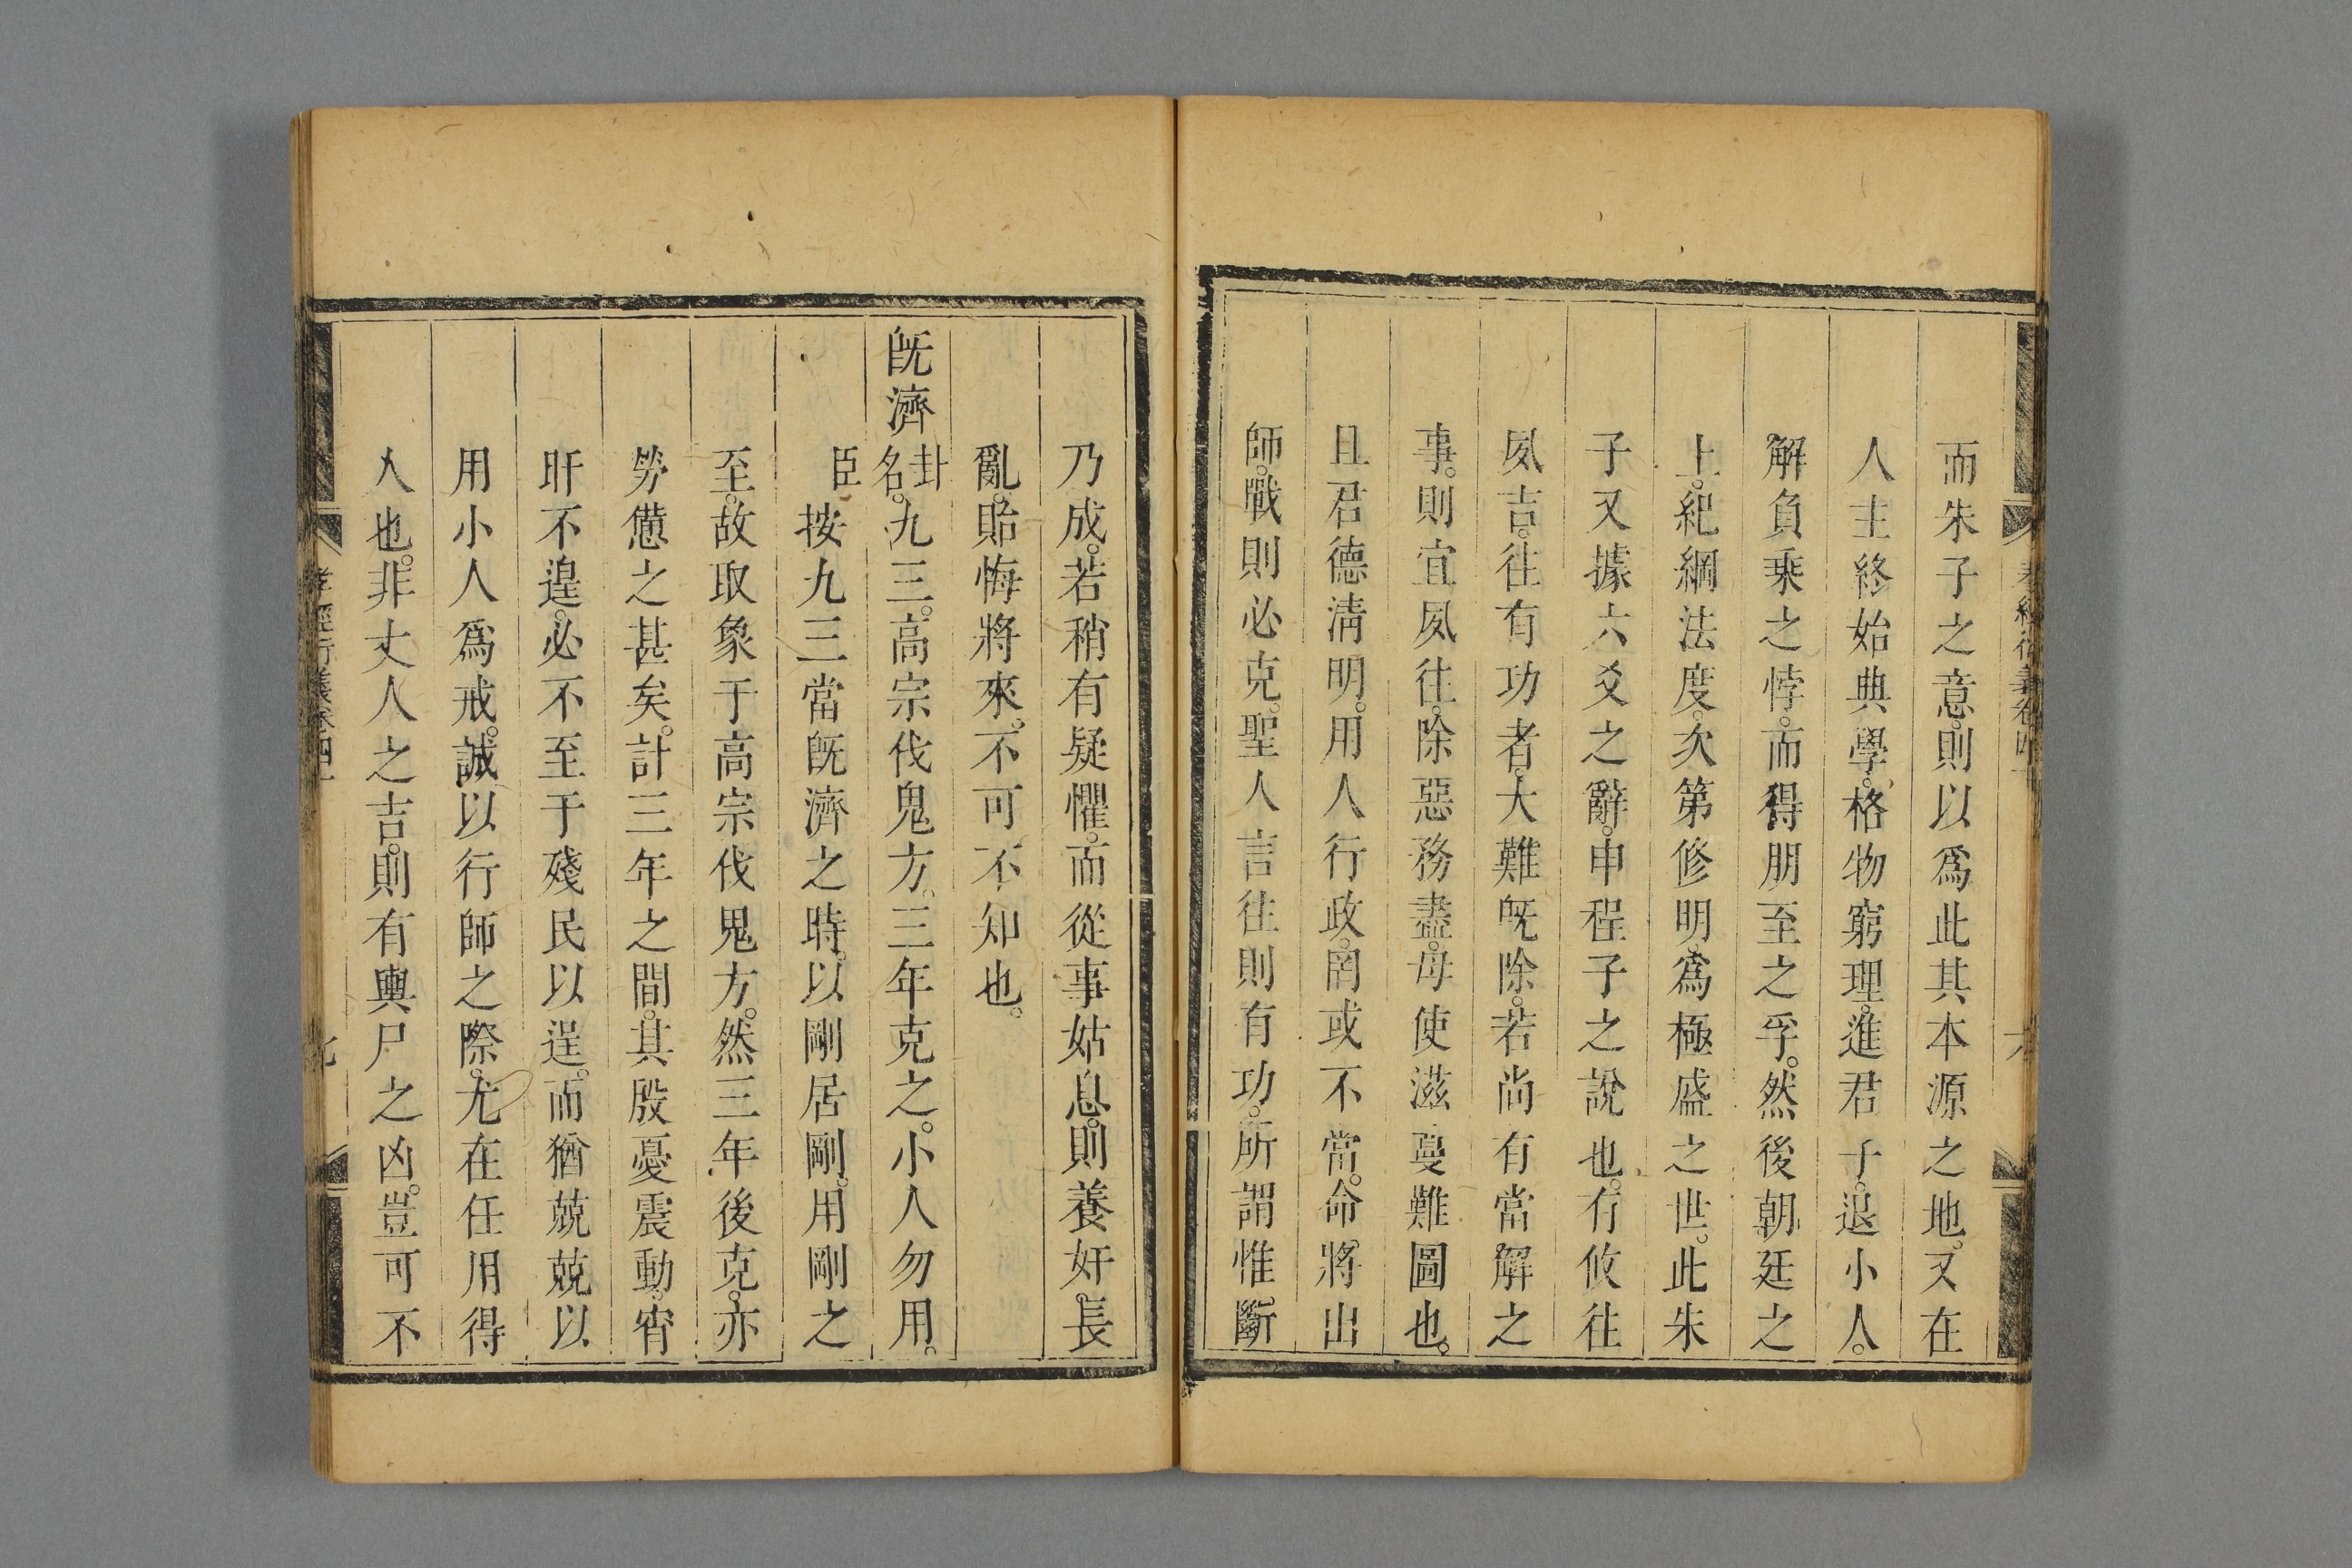 而朱子之意。則以爲此其本源之地。又在
人主終始典學。格物窮理。進君子。退小人。
解負乗之悖。而得朋至之孚。然後朝廷之
上。紀綱法度。次第修明。爲極盛之世。此朱
子又據六爻之辭。申程子之說也。有攸往
夙吉。往有功者。大難旣除。若尚有當解之
事。則宜夙往。除惡務盡。毋使滋蔓難圖也。
且君德淸明。用人行政。罔或不當。命將出
師。戰則必克。聖人言往則有功。所謂惟斷
乃成。若稍有疑懼。而從事姑息。則養奸。長
亂。貽悔將來。不可不知也。
旣濟卦名。九三。高宗伐鬼方。三年克之。小人勿用。
臣按九三當旣濟之時。以剛居剛。用剛之
至。故取象于高宗伐鬼方。然三年後克。亦
勞憊之甚矣。計三年之間。其殷憂震動。宵
旰不遑。必不至于殘民以逞。而猶兢兢以
用小人爲戒。誠以行師之際。尤在任用得
人也。非丈人之吉。則有輿尸之凶。豈可不
孝經衍義卷四十